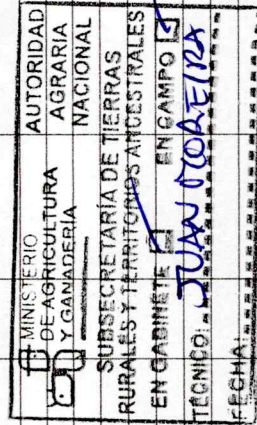 MINISTERIO
DE AGRICULTURA
Y GANADERÍA
AUTORIDAD
AGRARIA
NACIONAL
SUBSECRETARÍA DE TIERRAS
RURALES Y TERRITORIOS ANCESTRALES
EN GABINETE EN CAMPO
TÉCNICO: JUAN MOREIRA
FECHA: